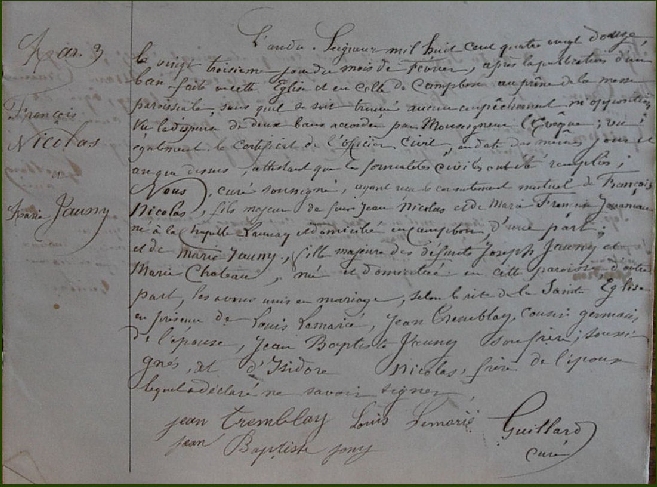 Mar. 3
François
Nicolas
Marie Jauny
L'an du Seigneur mil huit cent quatre vingt douze
le vingt troisième jour du mois de Février, après la publication d'un
ban faite en cette Eglise et en celle de Campbon au prône de la messe
paroissiale, sans qu'il se soit trouvé aucun empêchement ni opposition,
vu la dispense de deux bans accordée par Monseigneur l'Evêque; vu
également le certificat de l'officier civil, en date des mêmes jour et
an que dessus, attestant que les formalités civiles ont été remplies;
Nous, curé soussigné, ayant reçu le consentement mutuel de François
Nicolas, fils majeur de feu Jean Nicolas et de Marie Françoise
né à la Launay et domicilié en Campbon, d'une part;
et de Marie Jauny, fille majeure des défunts Joseph Jauny et
Marie Chateau, née et domiciliée en cette paroisse d'autre
part, les avons unis en mariage, selon le rite de la Sainte Eglise
en présence de Louis Lemarié, Jean Tremblay cousin germain,
de l'épouse, Jean Baptiste Jauny son frère; soussi-
gnés, et d'Isidore Nicolas, frère de l'époux
lequel a déclaré ne savoir signer
jean tremblay Louis Lemarié Guillard
jean Baptiste jony curé